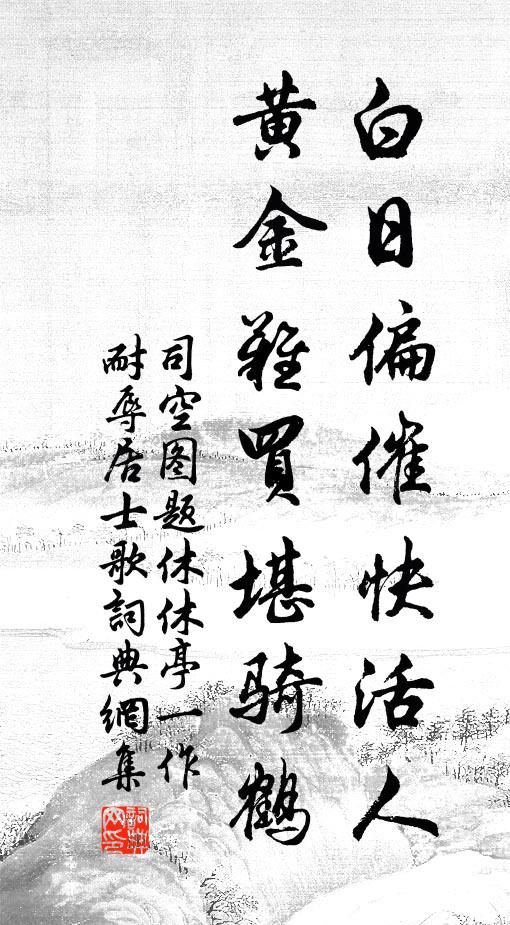 白日偏催快活人
黄金難買堪騎鶴
司空图题休休亭一作
耐辱居士歌詞典網集